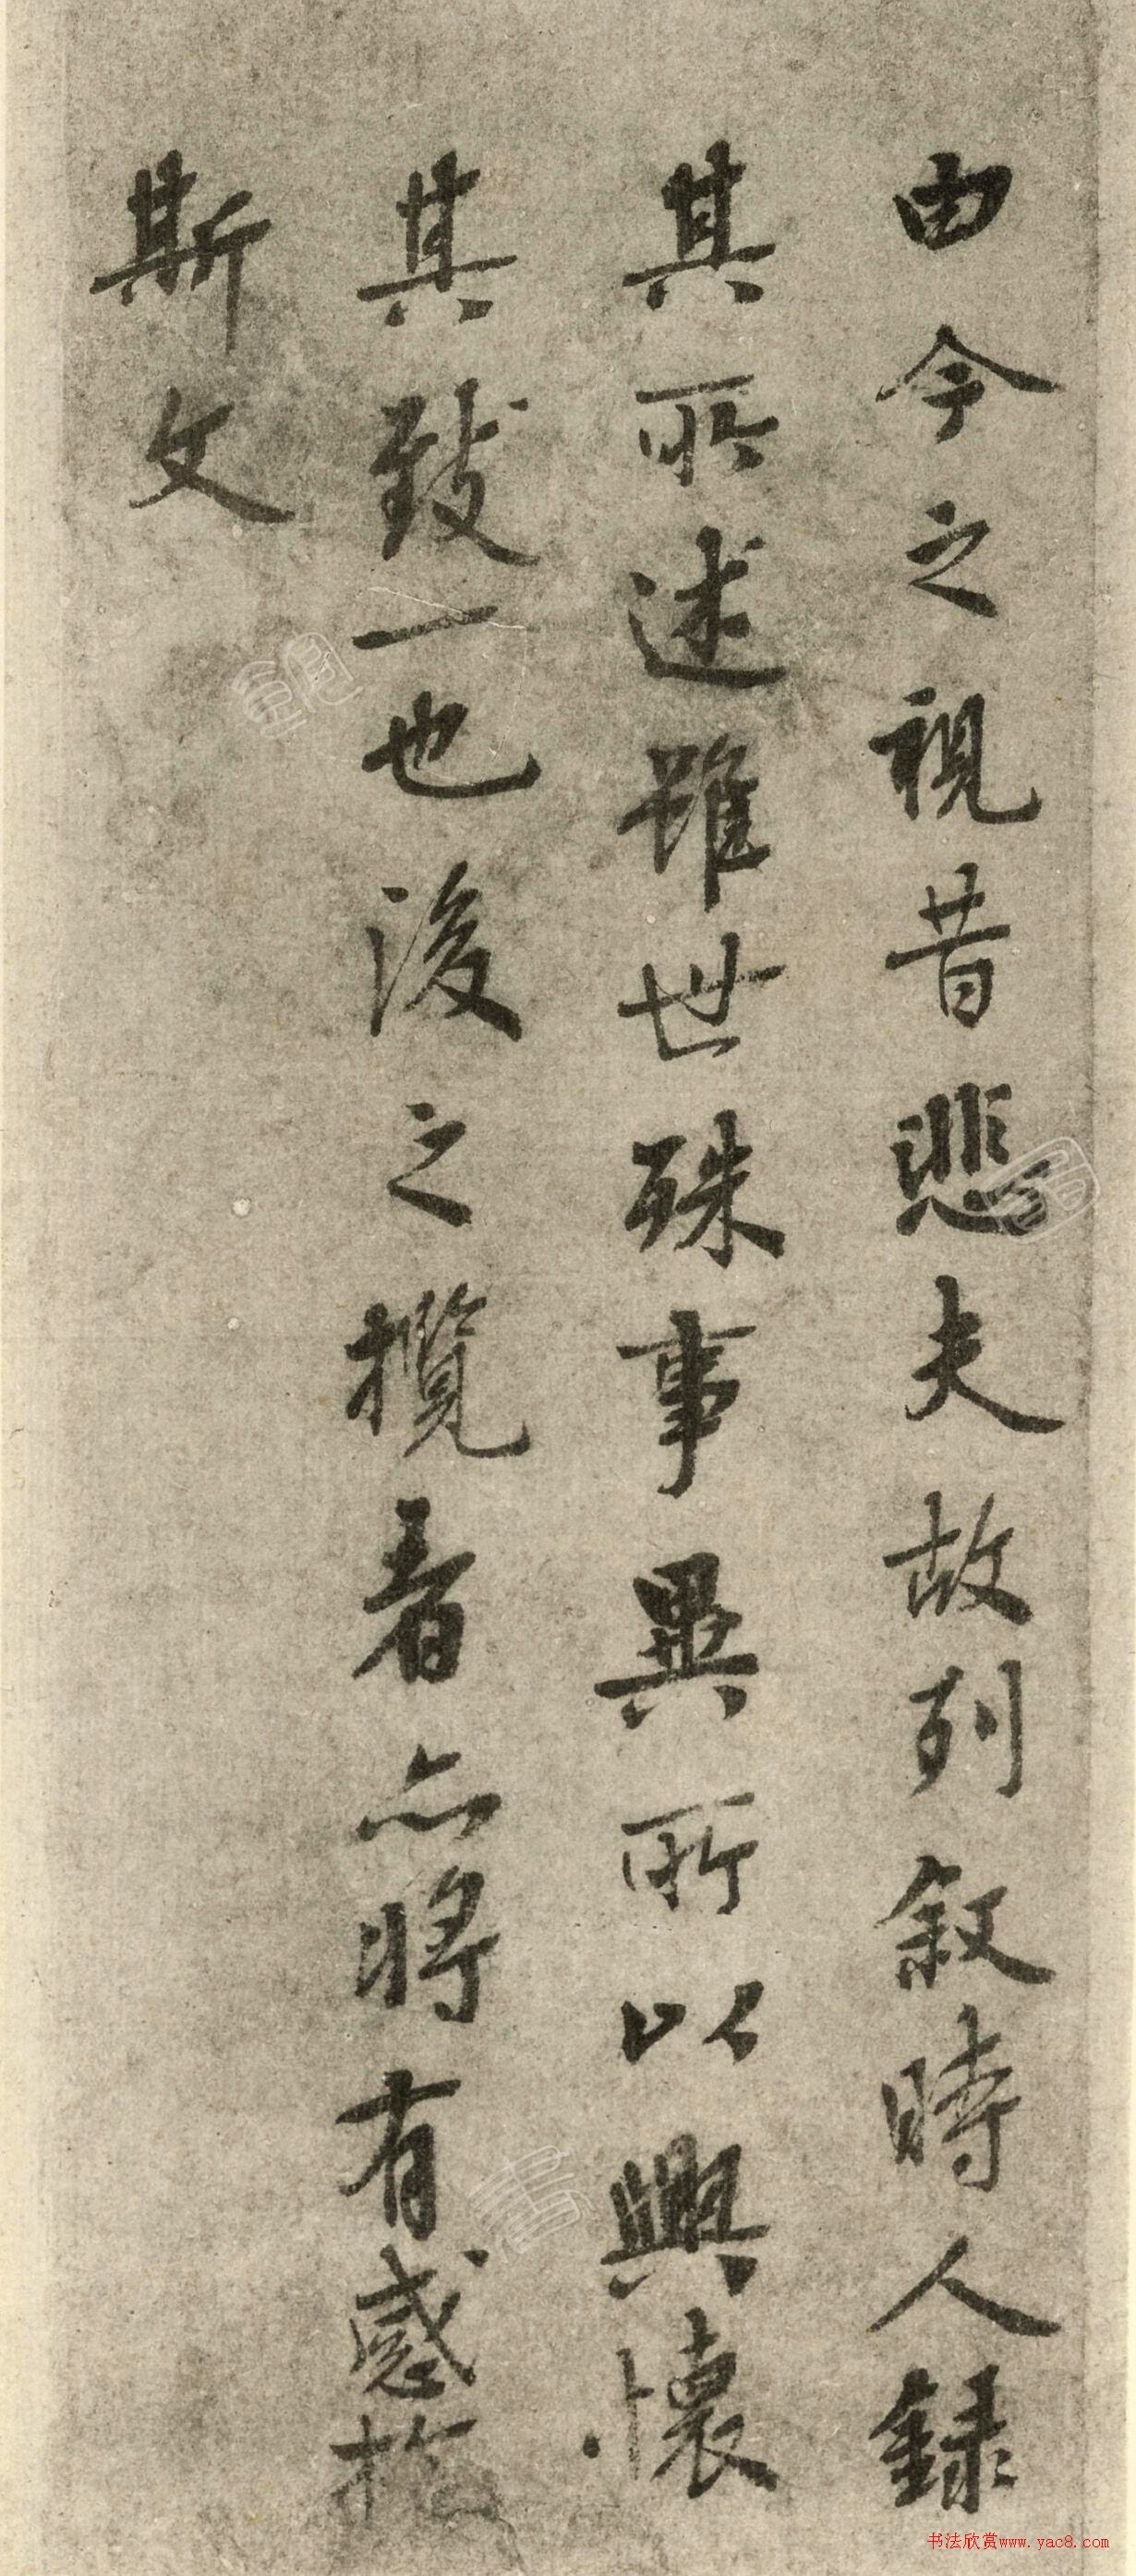 由今之視昔悲夫故列叙時人録
其所述雖世殊事異所以興懷
其致一也後之攬者亦將有感於
斯文
书法欣赏www.yac8.com